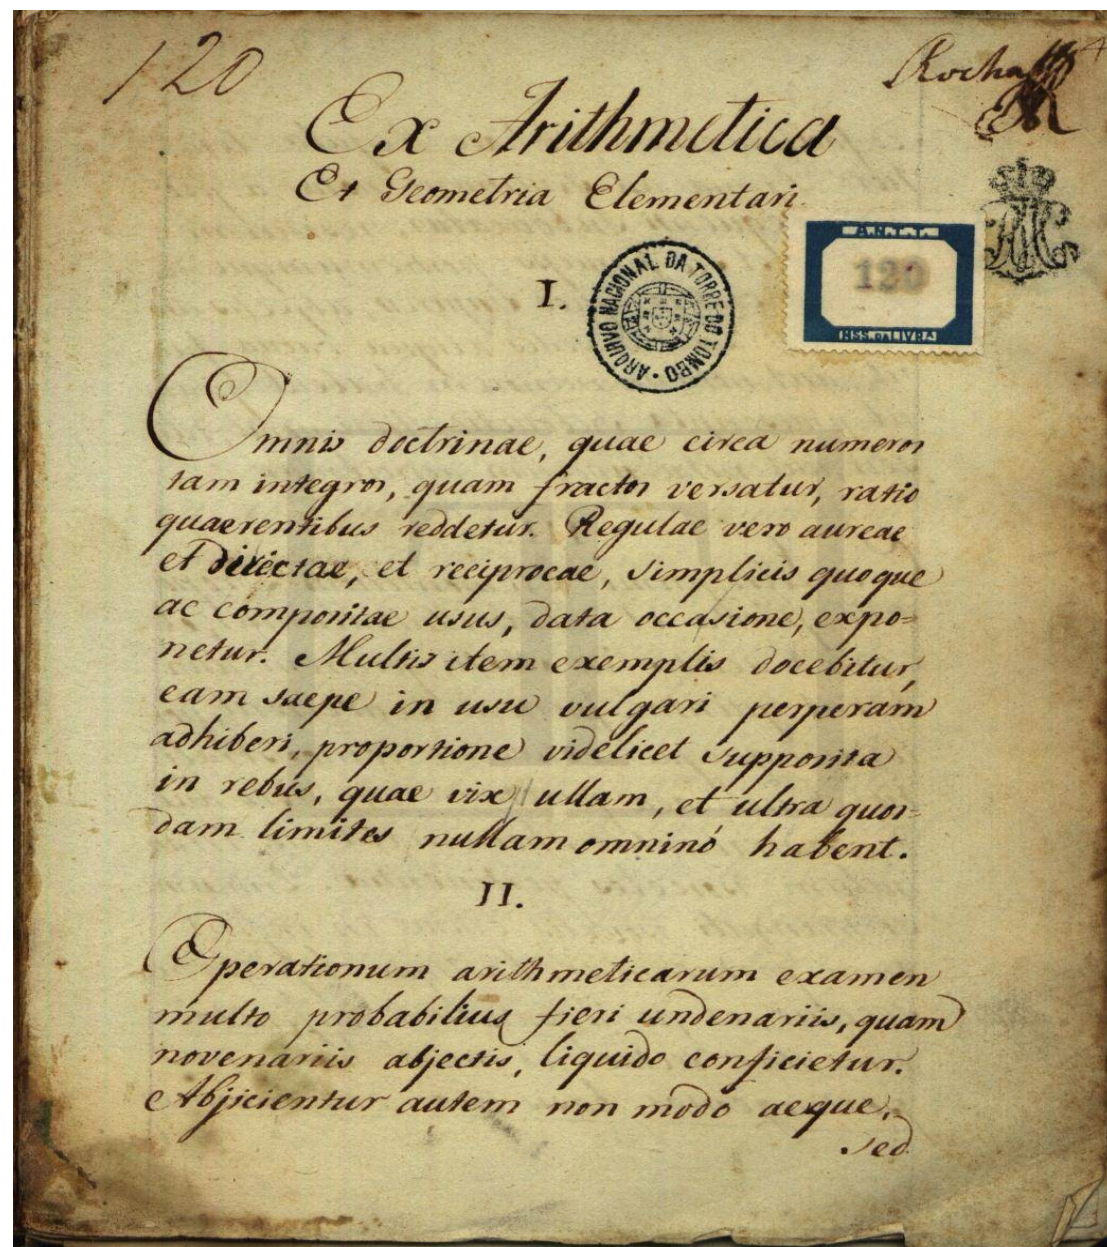 120
Rocha
Ex Arithmetica
Et Geometria Elementari.
A.N.T.T.
120
MSS. DA LIVRA
I.
ARQUIVO NACIONAL DA TORRE DO TOMBO
Omnis doctrinae, quae circa numeros
tam integros, quam fractos versatur, ratio
quaerentibus reddetur. Regulae vero aureae
et directae, et reciprocae, simplicis quoque
ac compositae usus, data occasione, expo=
netur. Multis item exemplis docebitur,
eam saepe in usu vulgari perperam
adhiberi, proportione videlicet supposita
in rebus, quae vix ullam, et ultra quos=
dam limites nullam omninó habent.
II.
Operationum arithmeticarum examen
multo probabilius fieri undenariis, quam
novenariis abjectis, liquido conficietur.
Abjicientur autem non modo aeque,
sed